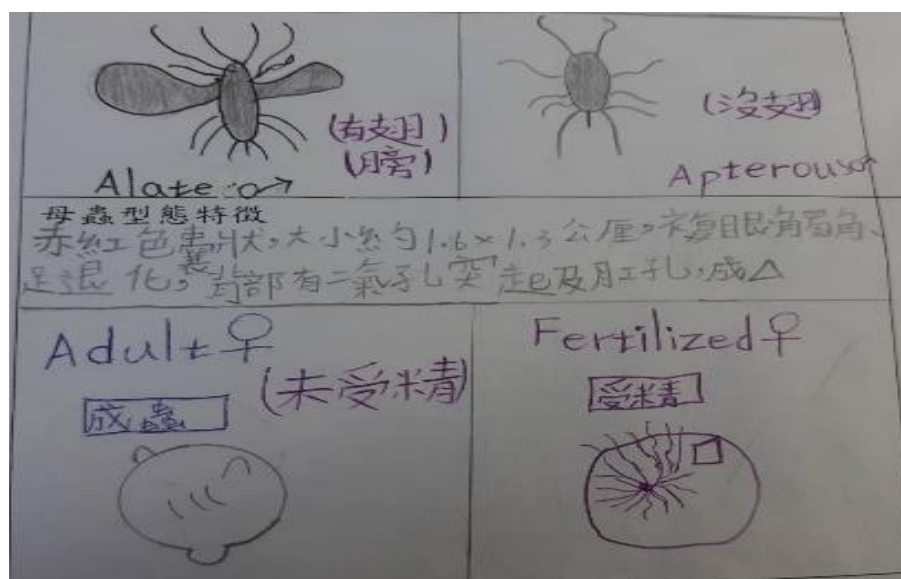 (有翅
膀)
Alate ♂
(沒翅)
Apterous♂
母蟲型態特徵
赤紅色囊狀,大小約1.6×1.3公厘,複眼觸角、
足退化,背部有二氣孔突起及肛孔,成△
Adult♀
(未受精)
成蟲
Fertilized♀
受精